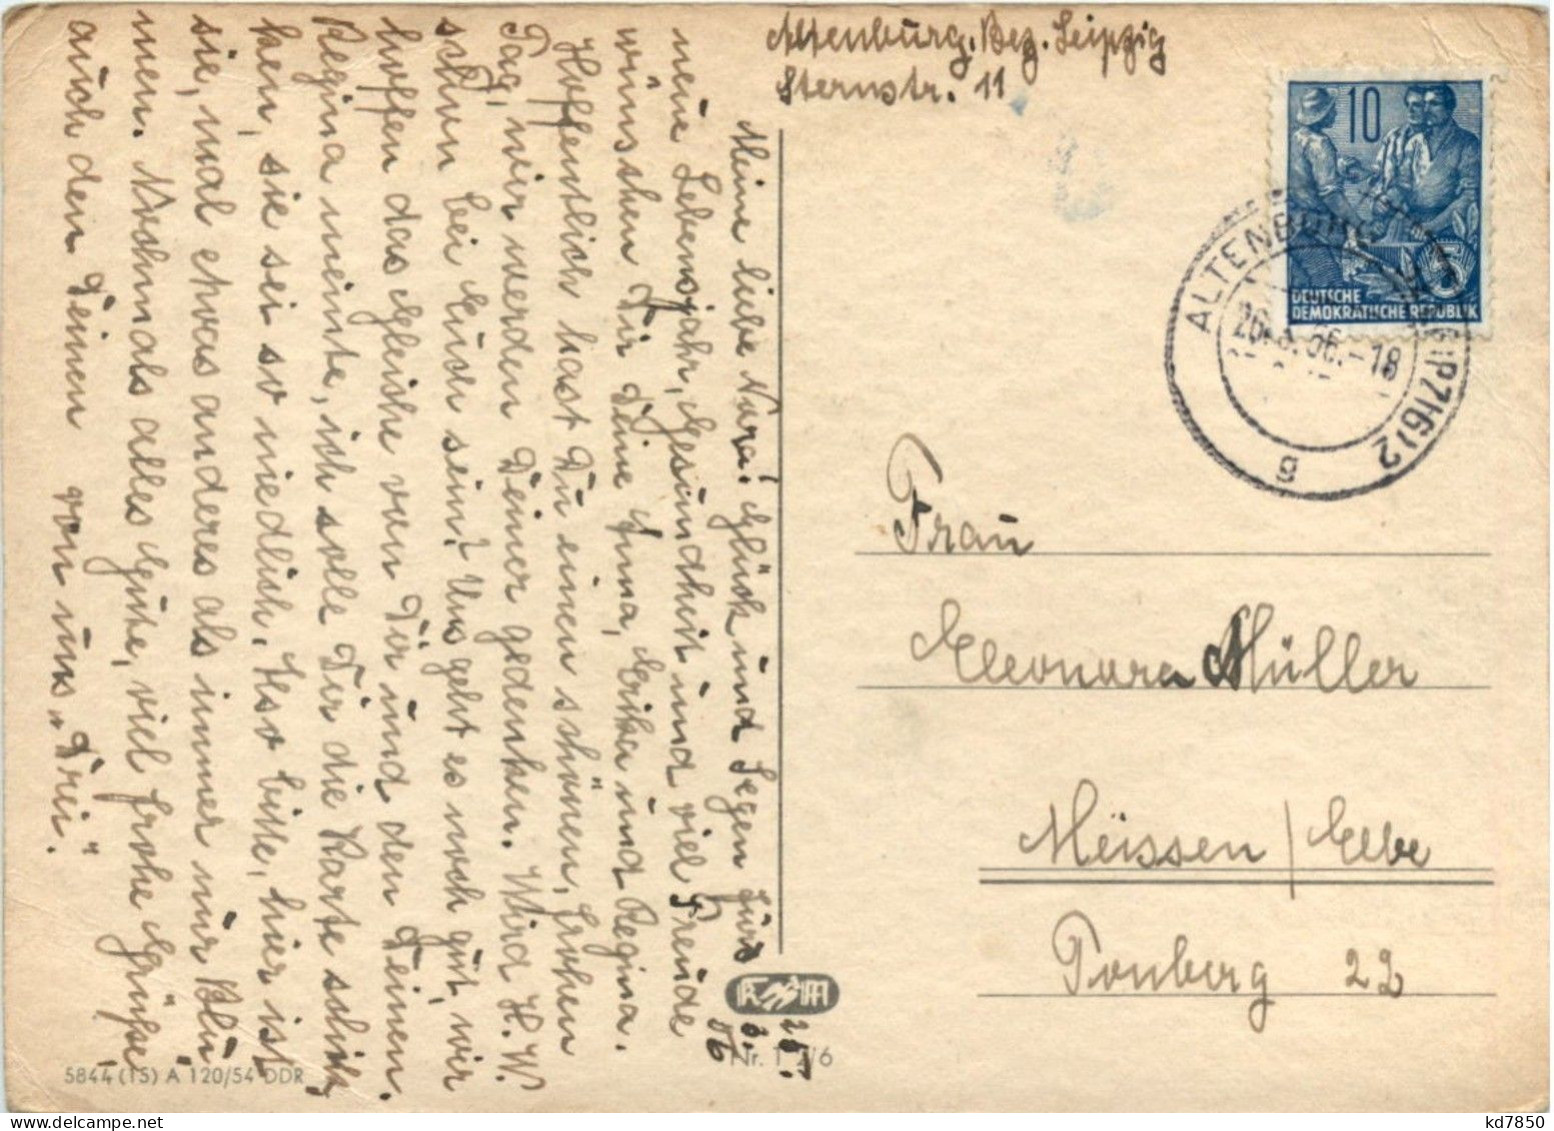 Altenburg, Bez. Leipzig
Sternstr. 11
Meine liebe Nora! Glück und Segen fürs
neue Lebensjahr, Gesundheit und viel Freude
wünschen Dir Deine Anna, Erika und Regina.
Hoffentlich hast Du einen schönen, frohen
Tag, wir werden Deiner gedenken. Wird H. W.
schon bei Euch sein? Uns geht es noch gut, wir
hoffen das Gleiche von Dir und den Deinen.
Regina meinte, ich solle Dir die Karte schik-
ken, sie sei so niedlich. Also bitte, hier ist
sie, mal etwas anderes als immer nur Blu-
men. Nochmals alles Gute, viel frohe Grüße
auch den Deinen von uns „Drei“.
10
DEUTSCHE
DEMOKRATISCHE REPUBLIK
5
ALTENBURG
LEIPZIG) 2
56.-18
g
Frau
Eleonora Müller
Meissen / Elbe
Tonberg 22
25.
56
Nr.
/6
5844 (15) A 120/54 DDR
kd7850